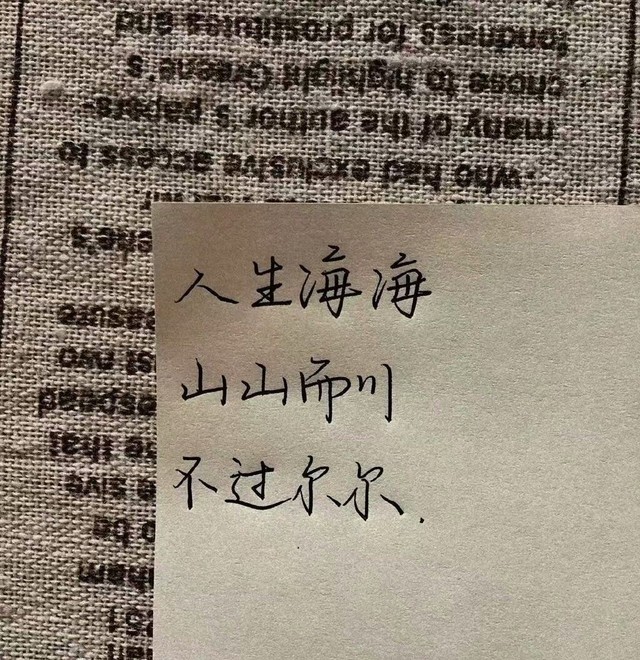 人生海海
山山而川
不过尔尔.
-who had exclusive access to
many of the author's papers-
chose to highlight Greene's
fondness for prostitutes and